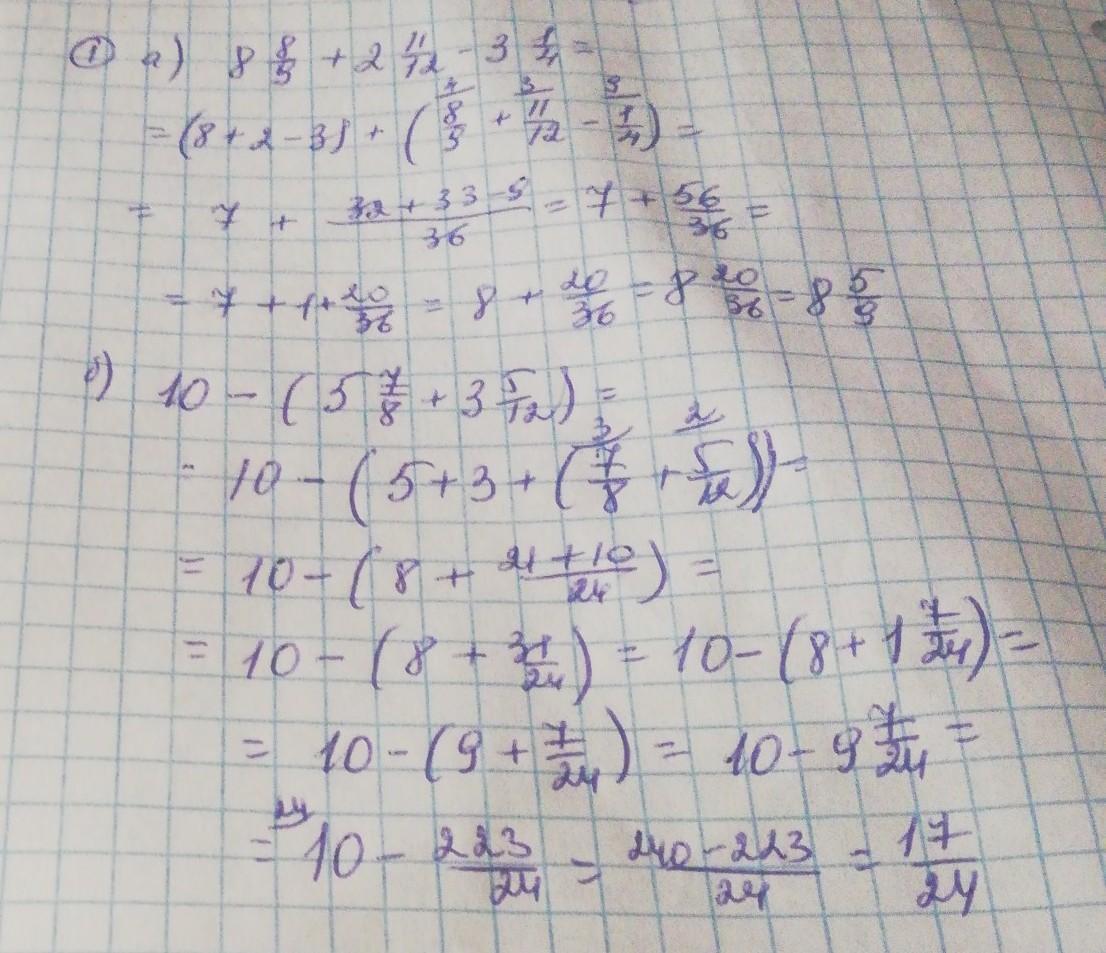 ① а) 8 8/9 + 2 11/12 - 3 1/4 =
= (8 + 2 - 3) + (8/9 + 11/12 - 1/4) =
= 7 + (32 + 33 - 9)/36 = 7 + 56/36 =
= 7 + 1 + 20/36 = 8 + 20/36 = 8 20/36 = 8 5/9
б) 10 - (5 7/8 + 3 5/12) =
= 10 - (5 + 3 + (7/8 + 5/12)) =
= 10 - (8 + (21 + 10)/24) =
= 10 - (8 + 31/24) = 10 - (8 + 1 7/24) =
= 10 - (9 + 7/24) = 10 - 9 7/24 =
= 10 - 223/24 = (240 - 223)/24 = 17/24